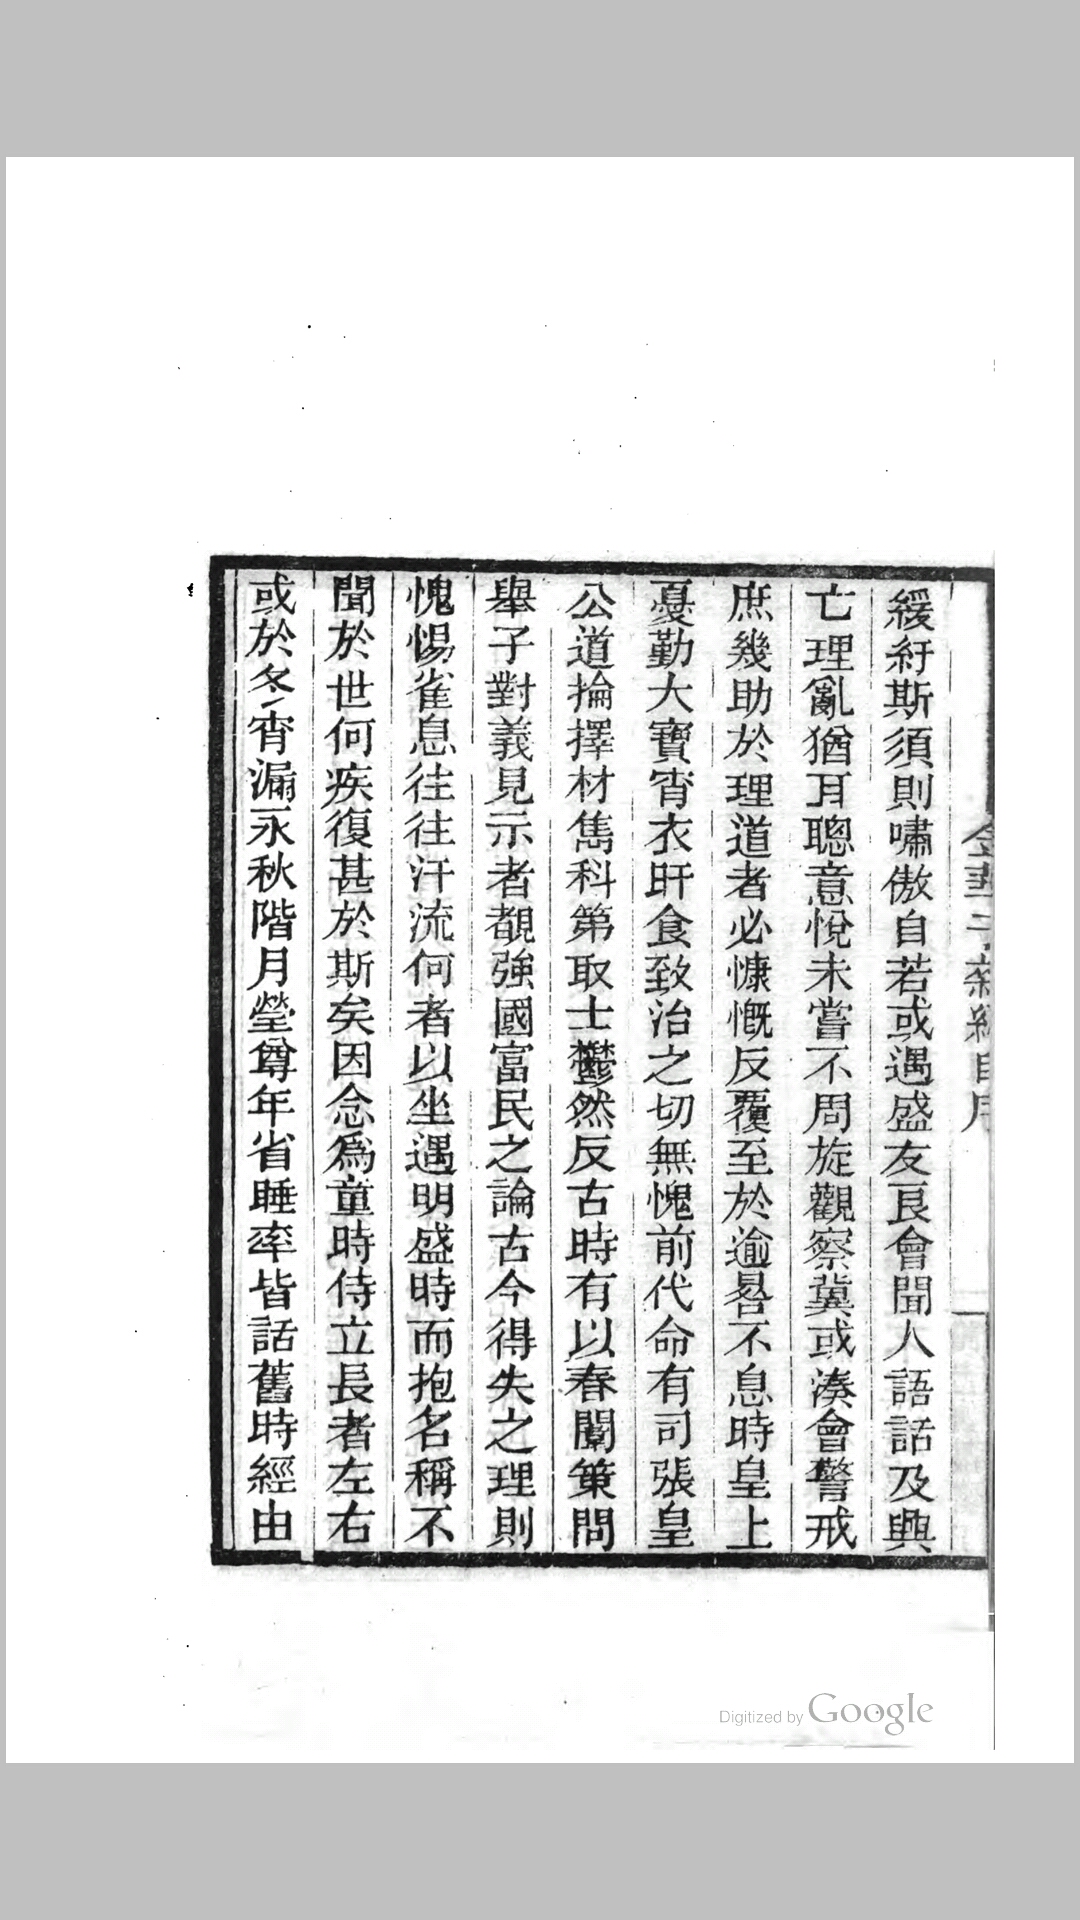 金華子雜編自序
一
緩紆斯須則嘯傲自若或遇盛友良會聞人語話及興
亡理亂猶耳聰意悅未嘗不周旋觀察冀或湊會警戒
庶幾助於理道者必慷慨反覆至於逾晷不息時皇上
憂勤大寶宵衣旰食致治之切無愧前代命有司張皇
公道掄擇材雋科第取士鬱然反古時有以春闈策問
舉子對義見示者覩強國富民之論古今得失之理則
愧惕雀息往往汗流何者以坐遇明盛時而抱名稱不
聞於世何疾復甚於斯矣因念爲童時侍立長者左右
或於冬宵漏永秋階月瑩尊年省睡率皆話舊時經由
Digitized by Google